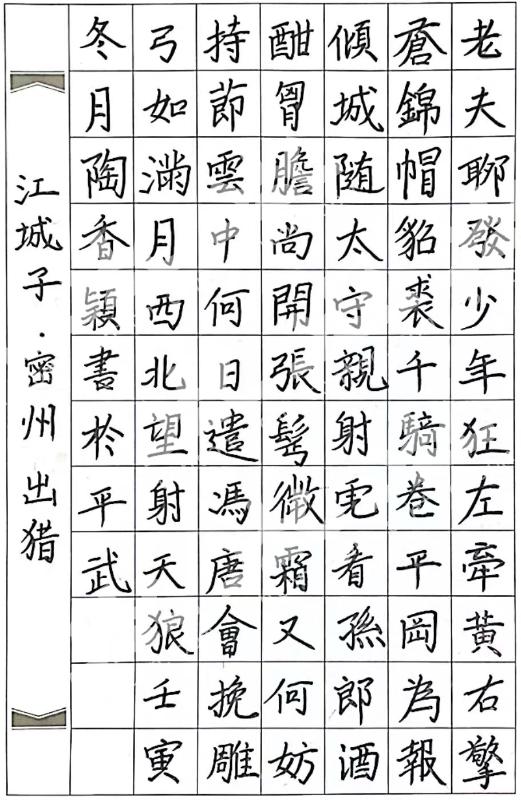 老夫聊發少年狂左牽黃右擎
蒼錦帽貂裘千騎卷平岡為報
傾城随太守親射虎看孫郎酒
酣胷膽尚開張鬢微霜又何妨
持節雲中何日遣馮唐會挽雕
弓如滿月西北望射天狼壬寅
冬月陶香穎書於平武
江城子·密州出猎